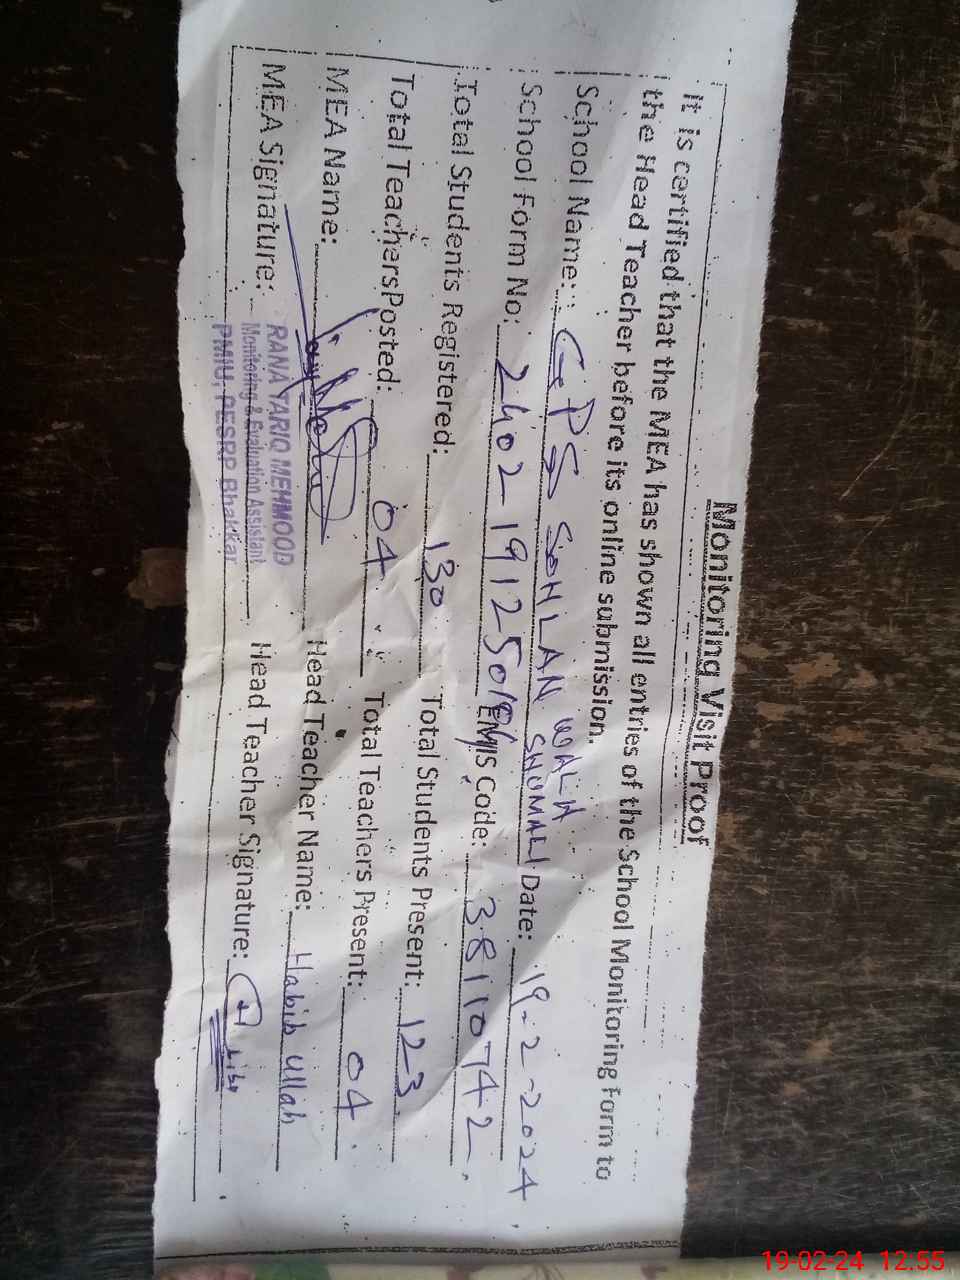 Monitoring Visit Proof
It is certified that the MEA has shown all entries of the School Monitoring Form to
the Head Teacher before its online submission.
School Name: GPS SOHLAN WALA SHUMALI Date: 19-2-2024
School Form No: EMIS Code: 38110742
Total Students Registered: 130 Total Students Present: 123
Total Teachers Posted: 04 Total Teachers Present: 04
MEA Name: Head Teacher Name: Habib Ullah
MEA Signature: Head Teacher Signature:
RANA TARIQ MEHMOOD
Monitoring & Evaluation Assistant
PMIU, PESRP Bhakkar
19-02-24 12:55